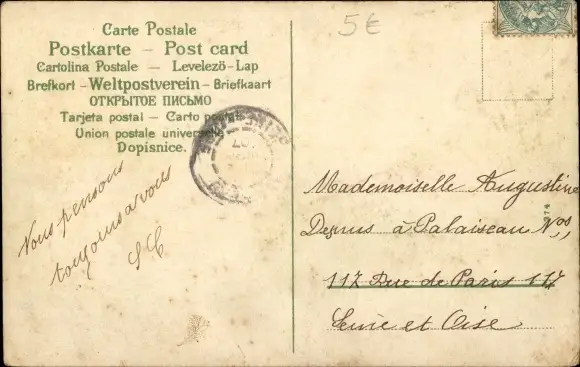 5€
Carte Postale
Postkarte — Post card
Cartolina Postale — Levelező-Lap
Brefkort - Weltpostverein - Briefkaart
ОТКРЫТОЕ ПИСЬМО
Tarjeta postal — Carto postal
Union postale universelle
Dopisnice.
07
Nous pensons
toujours a vous
Mademoiselle Augustine
à Palaiseau Nos
117 Rue de Paris 117
Seine et Oise